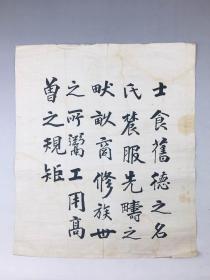 士食舊德之名
氏農服先疇之
畎畝商修族世
之所鬻工用高
曾之規矩